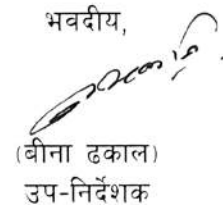 भवदीय,
(बीना ढकाल)
उप-निर्देशक